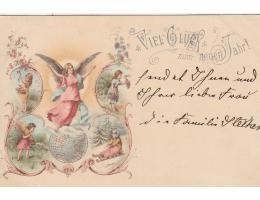 Viel Glück
zum neuen Jahr!
sendet Ihnen und
Ihrer lieben Frau
die Familie